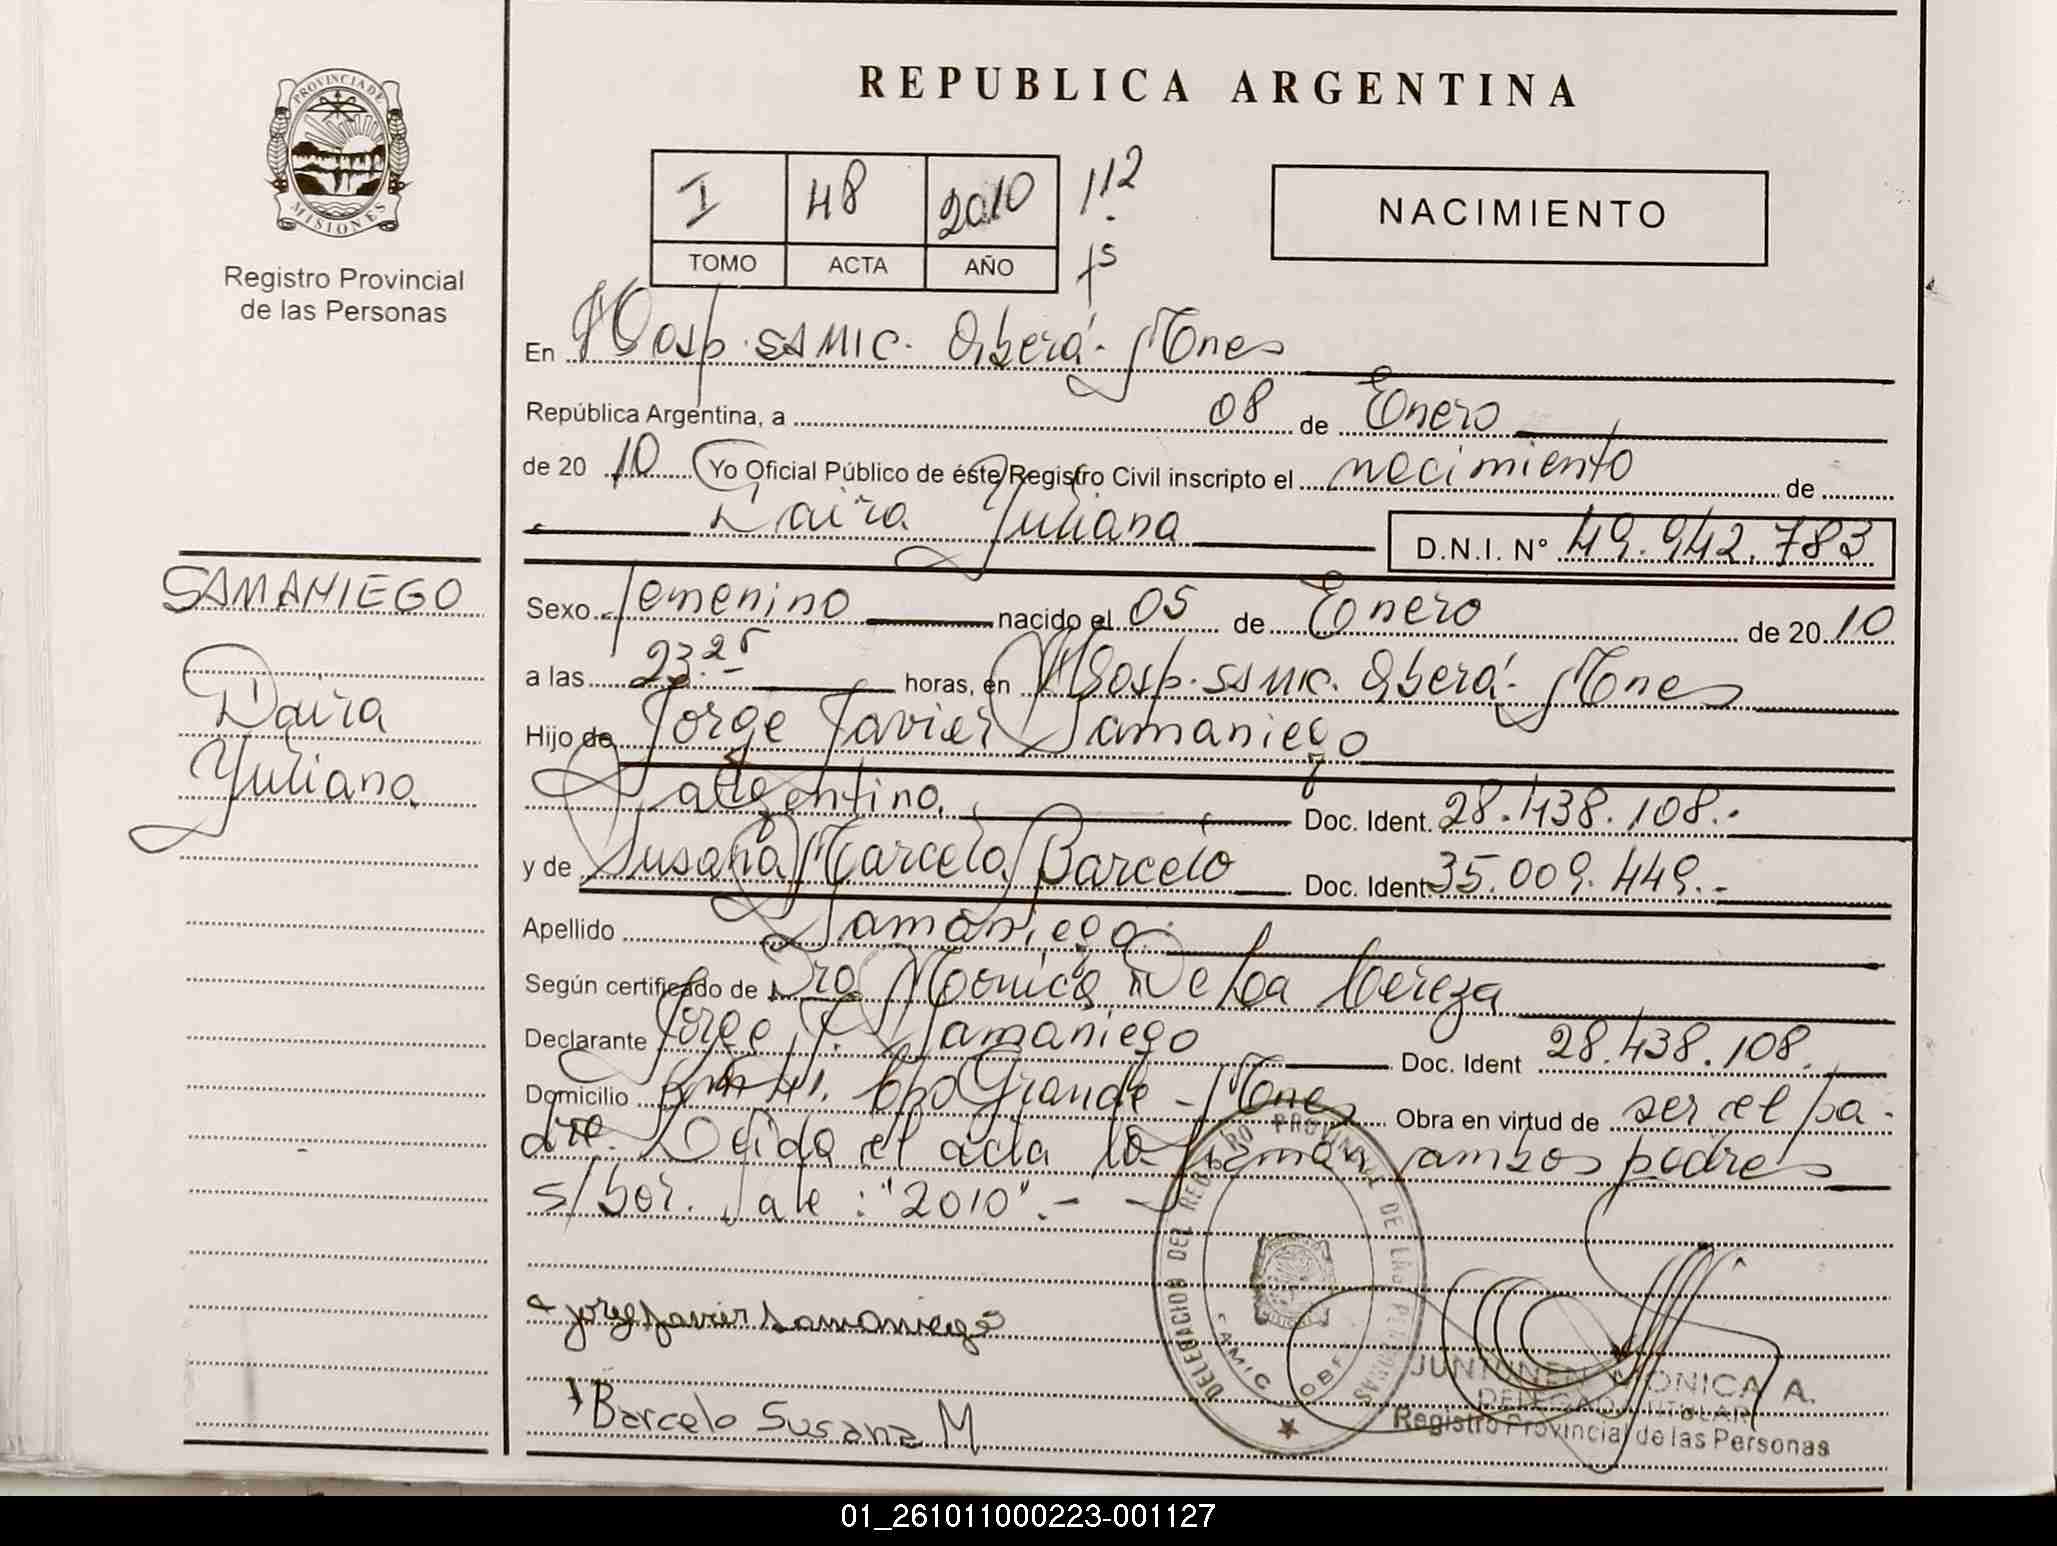 PROVINCIA DE
MISIONES
Registro Provincial
de las Personas
SAMANIEGO
Daira
Yuliana
REPUBLICA ARGENTINA
I 48 2010 112
TOMO ACTA AÑO fs
NACIMIENTO
En Hosp. SAMIC. Oberá - Mnes
República Argentina, a 08 de Enero
de 20 10 Yo Oficial Público de éste Registro Civil inscripto el nacimiento de
Daira Yuliana D.N.I. N° 49.942.783
Sexo femenino nacido el 05 de Enero de 20 10
a las 23.25 horas, en Hosp. SAMIC. Oberá - Mnes
Hijo de Jorge Javier Samaniego
argentino. Doc. Ident. 28.438.108.-
y de Susana Marcela Barcelo Doc. Ident. 35.009.449.-
Apellido Samaniego
Según certificado de Dra Monica De La
Declarante Jorge J. Samaniego Doc. Ident 28.438.108.
Domicilio Km 41. Cpo Grande - Mnes Obra en virtud de ser el pa-
dre. Leida el acta la firman ambos padres
s/bor. Vale: "2010".- -
Jorge Javier Samaniego
Barcelo Susana M
DELEGACION DEL REGISTRO PROVINCIAL DE LAS PERSONAS
SAMIC
JUNTUNEN MONICA A.
DELEGADA TITULAR
Registro Provincial de las Personas
01_261011000223-001127